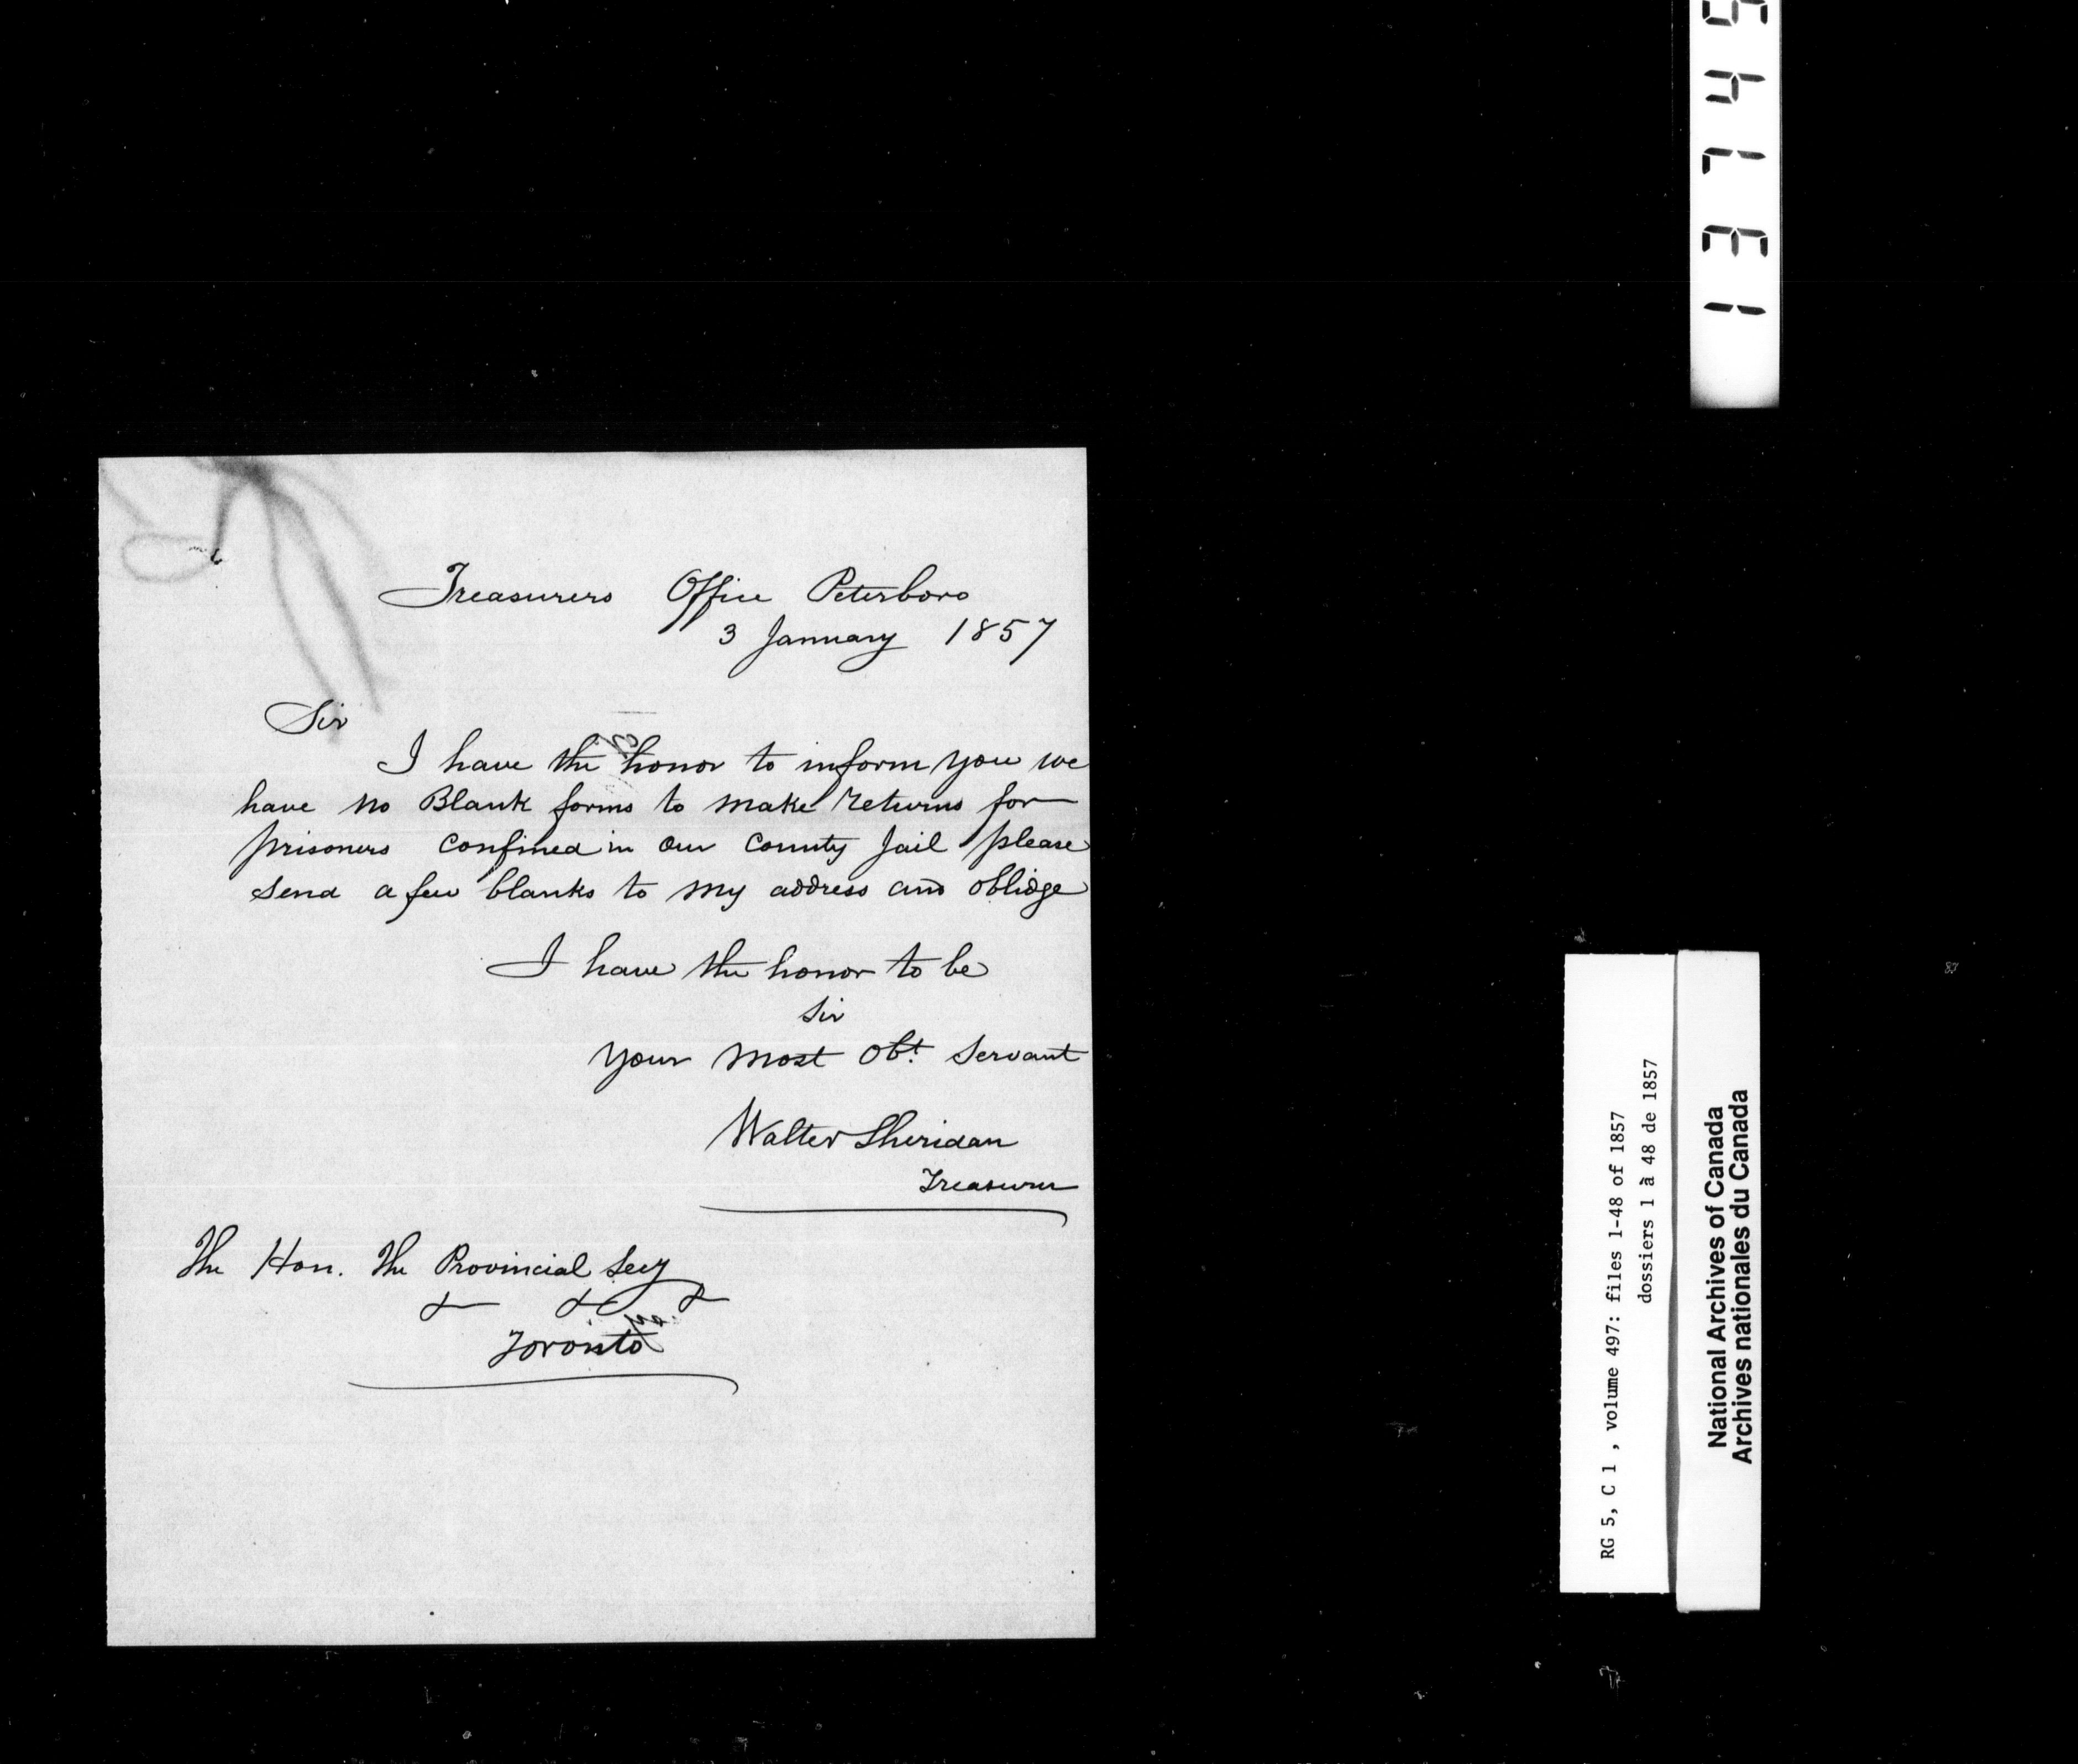 Treasurers Office Peterboro
3 January 1857
Sir
I have the honor to inform you we
have no Blank forms to make returns for
prisoners confined in our County Jail please
send a few blanks to my address and oblidge
I have the honor to be
Sir
your most Obt. Servant
Walter Sheridan
Treasurer
The Hon. The Provincial Secy
& & &
Toronto
1 3 7 4 5
RG 5, C 1 , volume 497: files 1-48 of 1857
dossiers 1 à 48 de 1857
National Archives of Canada
Archives nationales du Canada